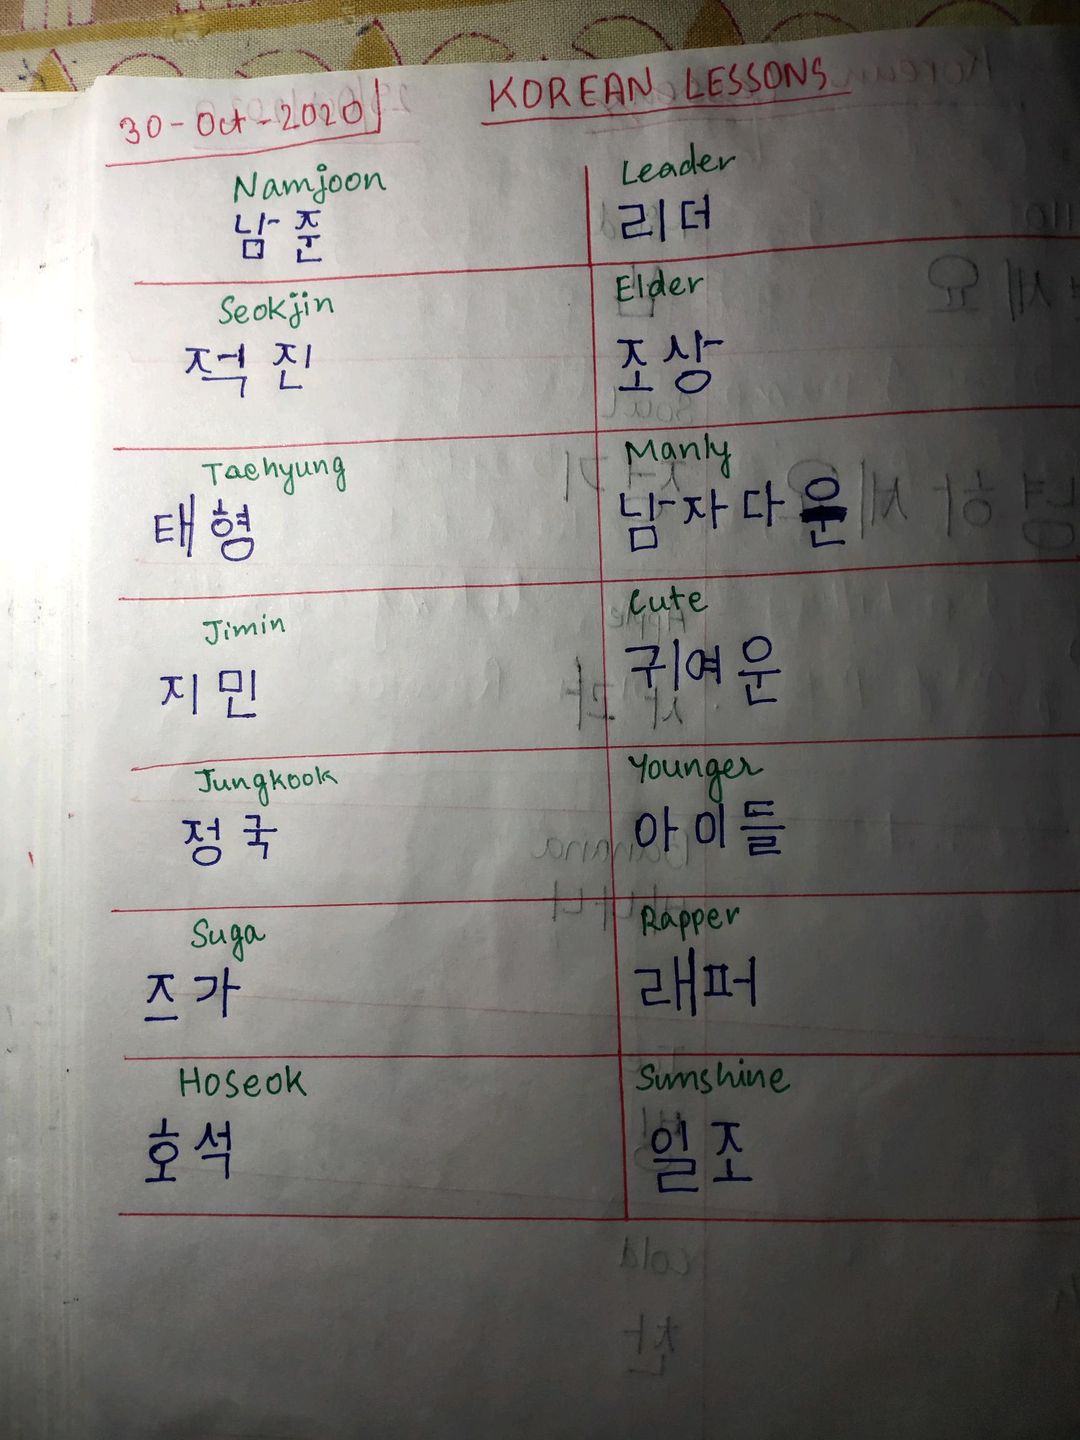 30-Oct-2020
KOREAN LESSONS
Namjoon
남준
Leader
리더
Seokjin
적진
Elder
조상
Taehyung
태형
Manly
남자다운
Jimin
지민
Cute
귀여운
Jungkook
정국
Younger
아이들
Suga
즈가
Rapper
래퍼
Hoseok
호석
Sunshine
일조